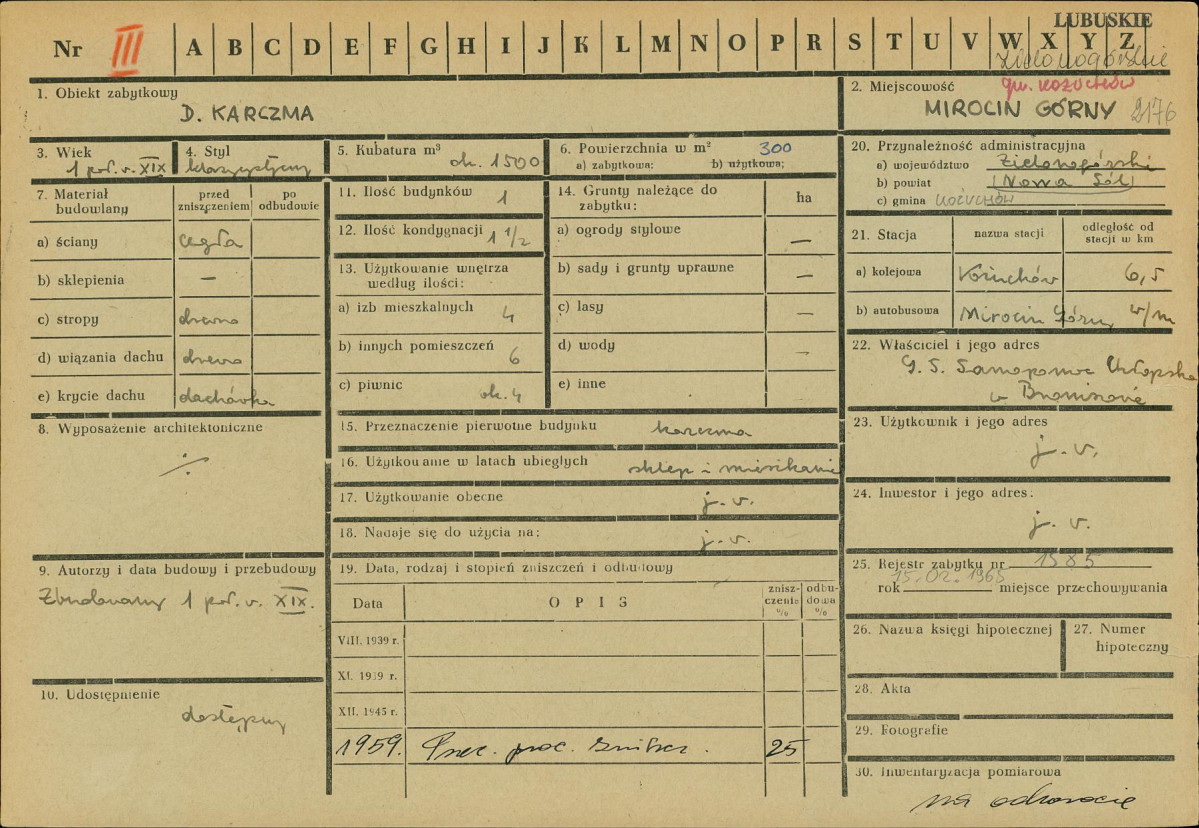 LUBUSKIE
Nr III A B C D E F G H I J K L M N O P R S T U V W X Y Z
Zielonogórskie
gm. KOŻUCHÓW
1. Obiekt zabytkowy
D. KARCZMA
2. Miejscowość
MIROCIN GÓRNY 2176
3. Wiek
1 poł. w. XIX
4. Styl
klasycystyczny
5. Kubatura m³
ok. 1500
6. Powierzchnia w m² 300
a) zabytkowa: b) użytkowa:
7. Materiał budowlany
przed zniszczeniem
po odbudowie
a) ściany cegła
b) sklepienia —
c) stropy drewno
d) wiązania dachu drewno
e) krycie dachu dachówka
8. Wyposażenie architektoniczne
9. Autorzy i data budowy i przebudowy
Zbudowany 1 poł. w. XIX.
10. Udostępnienie
dostępny
11. Ilość budynków 1
12. Ilość kondygnacji 1 1/2
13. Użytkowanie wnętrza
według ilości:
a) izb mieszkalnych 4
b) innych pomieszczeń 6
c) piwnic ok. 4
14. Grunty należące do
zabytku: ha
a) ogrody stylowe —
b) sady i grunty uprawne —
c) lasy —
d) wody —
e) inne
15. Przeznaczenie pierwotne budynku karczma
16. Użytkowanie w latach ubiegłych sklep i mieszkanie
17. Użytkowanie obecne j. w.
18. Nadaje się do użycia na: j. w.
19. Data, rodzaj i stopień zniszczeń i odbudowy
Data
OPIS
zniszczenie %
odbudowa %
VIII. 1939 r.
XI. 1939 r.
XII. 1945 r.
1959. 25
20. Przynależność administracyjna
a) województwo Zielonogórskie
b) powiat (Nowa Sól)
c) gmina KOŻUCHÓW
21. Stacja
nazwa stacji
odległość od stacji w km
a) kolejowa Kożuchów 6,5
b) autobusowa Mirocin Górny w/m
22. Właściciel i jego adres
G. S. Samopomoc Chłopska
23. Użytkownik i jego adres
j. w.
24. Inwestor i jego adres:
j. w.
25. Rejestr zabytku nr 1385
15.02.1965
rok miejsce przechowywania
26. Nazwa księgi hipotecznej
27. Numer hipoteczny
28. Akta
29. Fotografie
30. Inwentaryzacja pomiarowa
na odwrocie